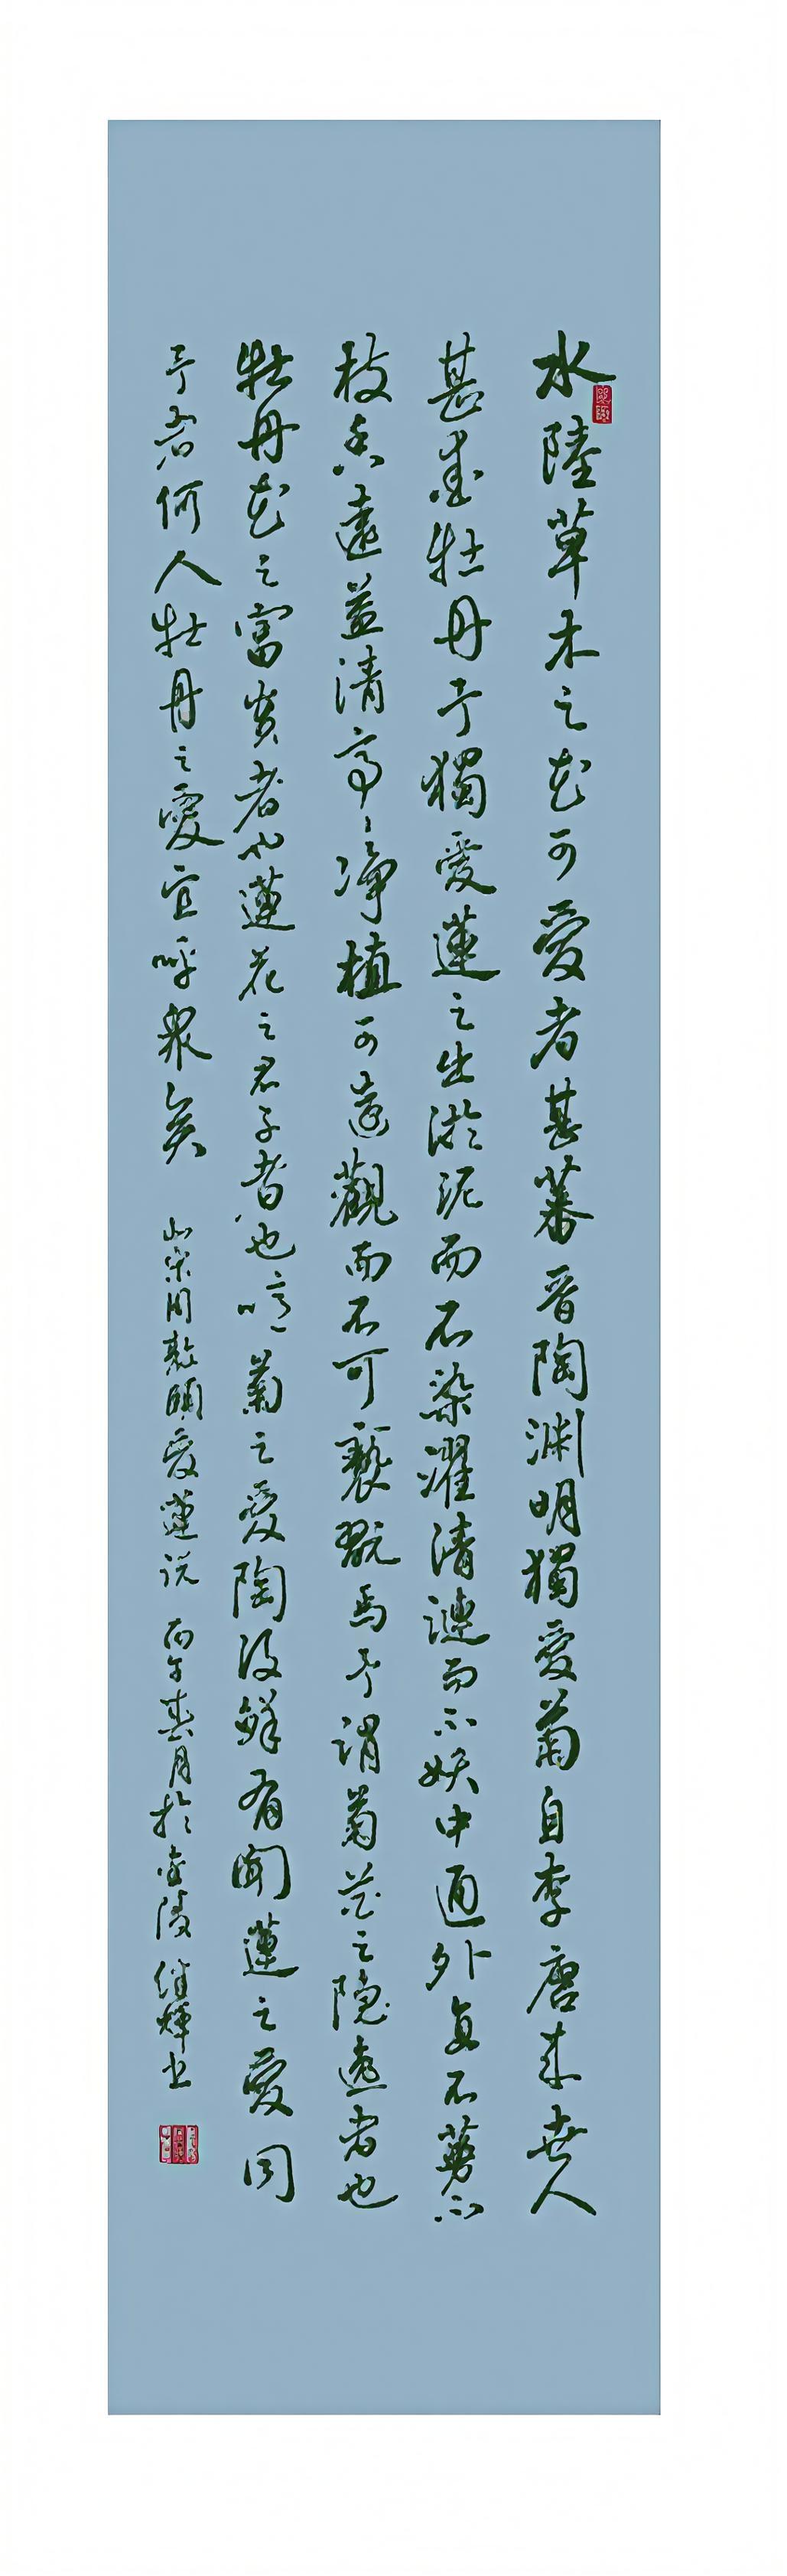 水陸草木之花可愛者甚蕃晋陶渊明獨愛菊自李唐来世人
甚愛牡丹予獨愛蓮之出淤泥而不染濯清漣而不妖中通外直不蔓不
枝香遠益清亭〻净植可遠觀而不可褻翫焉予謂菊花之隐逸者也
牡丹花之富貴者也蓮花之君子者也噫菊之愛陶後鮮有聞蓮之愛同
予者何人牡丹之愛宜呼衆矣 北宋周敦頤愛蓮说 丙午春月於金陵 继輝书